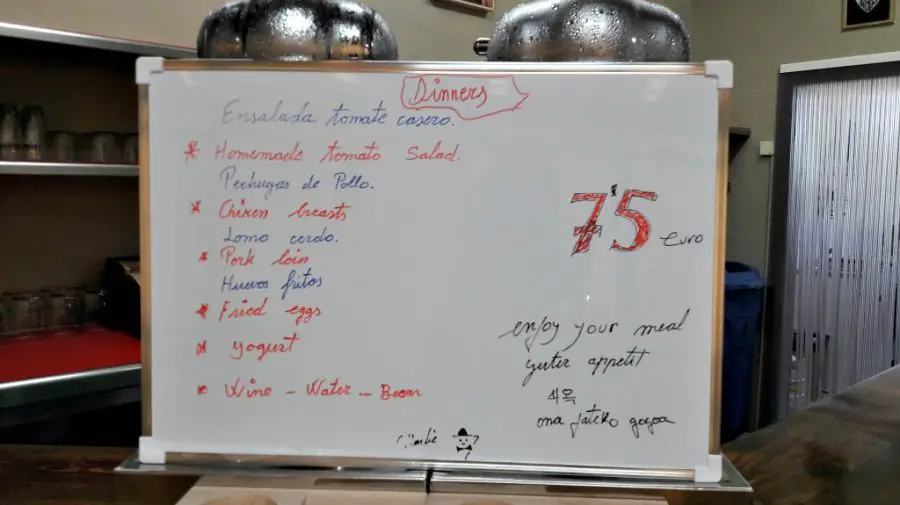 Dinners
Ensalada tomate casero.
* Homemade tomato Salad.
Pechugas de Pollo.
* Chiken breasts
Lomo cerdo.
* Pork loin
Huevos fritos
* Fried eggs
* yogurt
* Wine - Water -- Beer
7'5 euro
enjoy your meal
guter appetit
식욕
ona jateko gogoa
Charlie